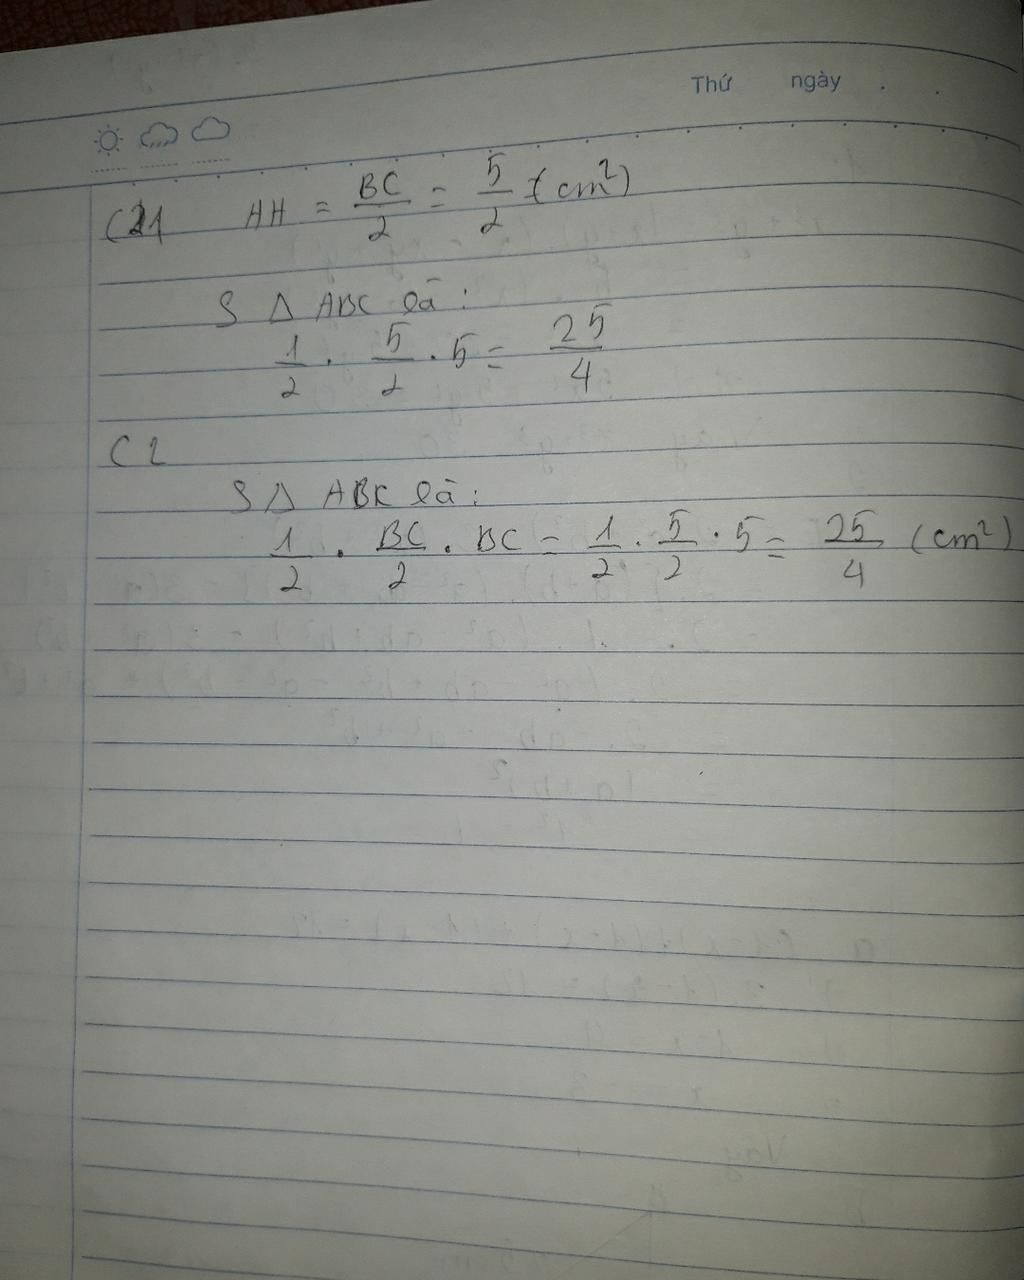 Thứ ngày . .
C1 AH = BC/2 = 5/2 (cm²)
S Δ ABC là:
1/2 . 5/2 . 5 = 25/4
C2
S Δ ABC là:
1/2 . BC/2 . BC = 1/2 . 5/2 . 5 = 25/4 (cm²)